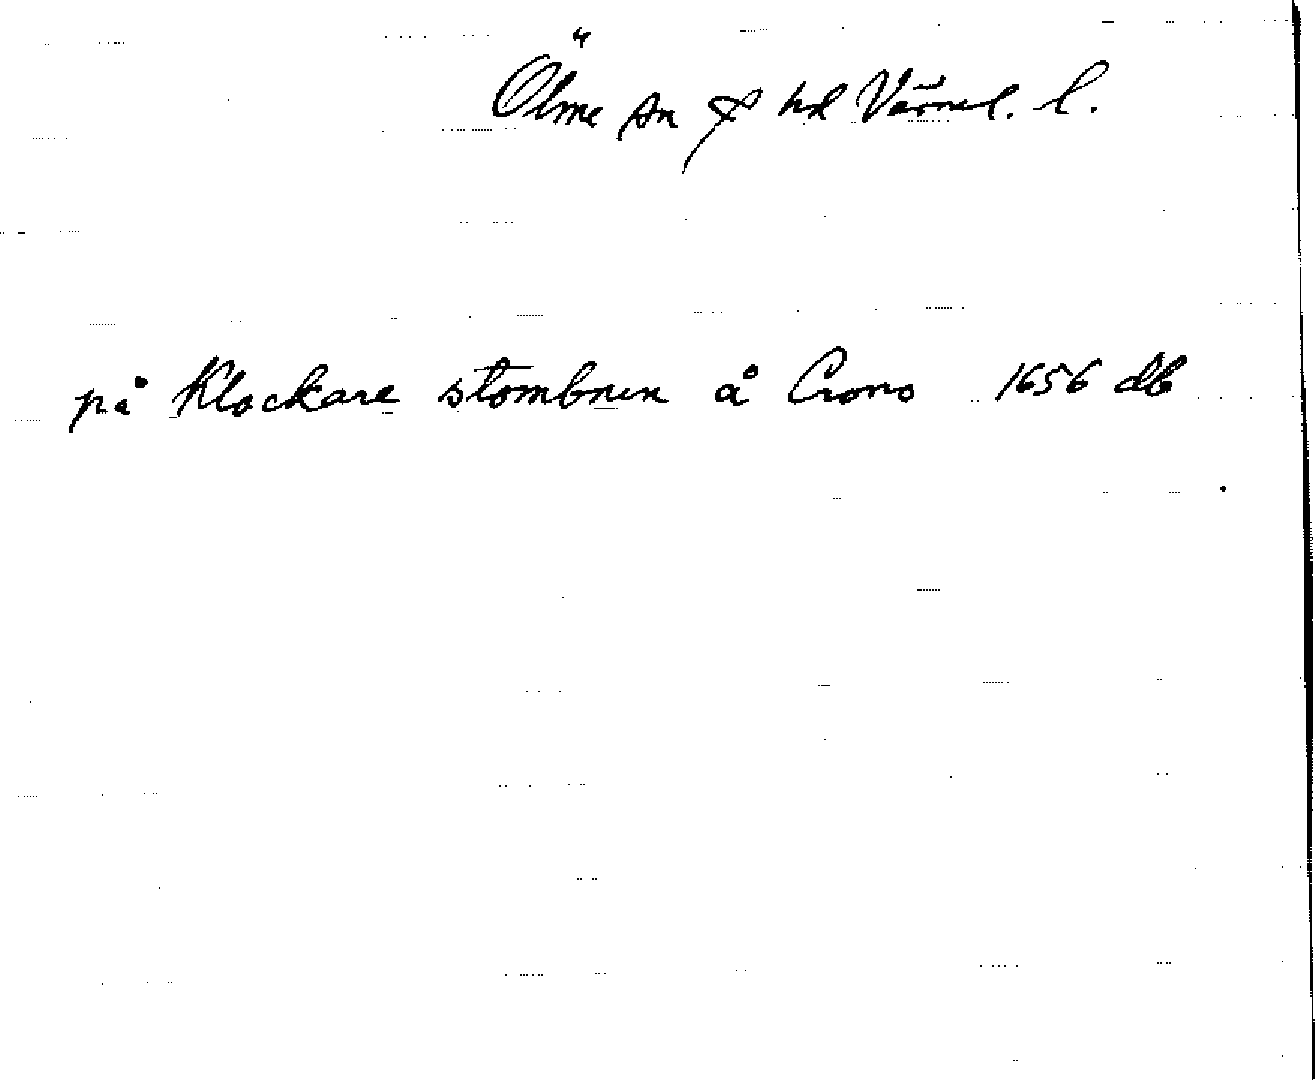 Ölme sn & hd Värml. l.
på Klockare stombnen å Crono 1656 db